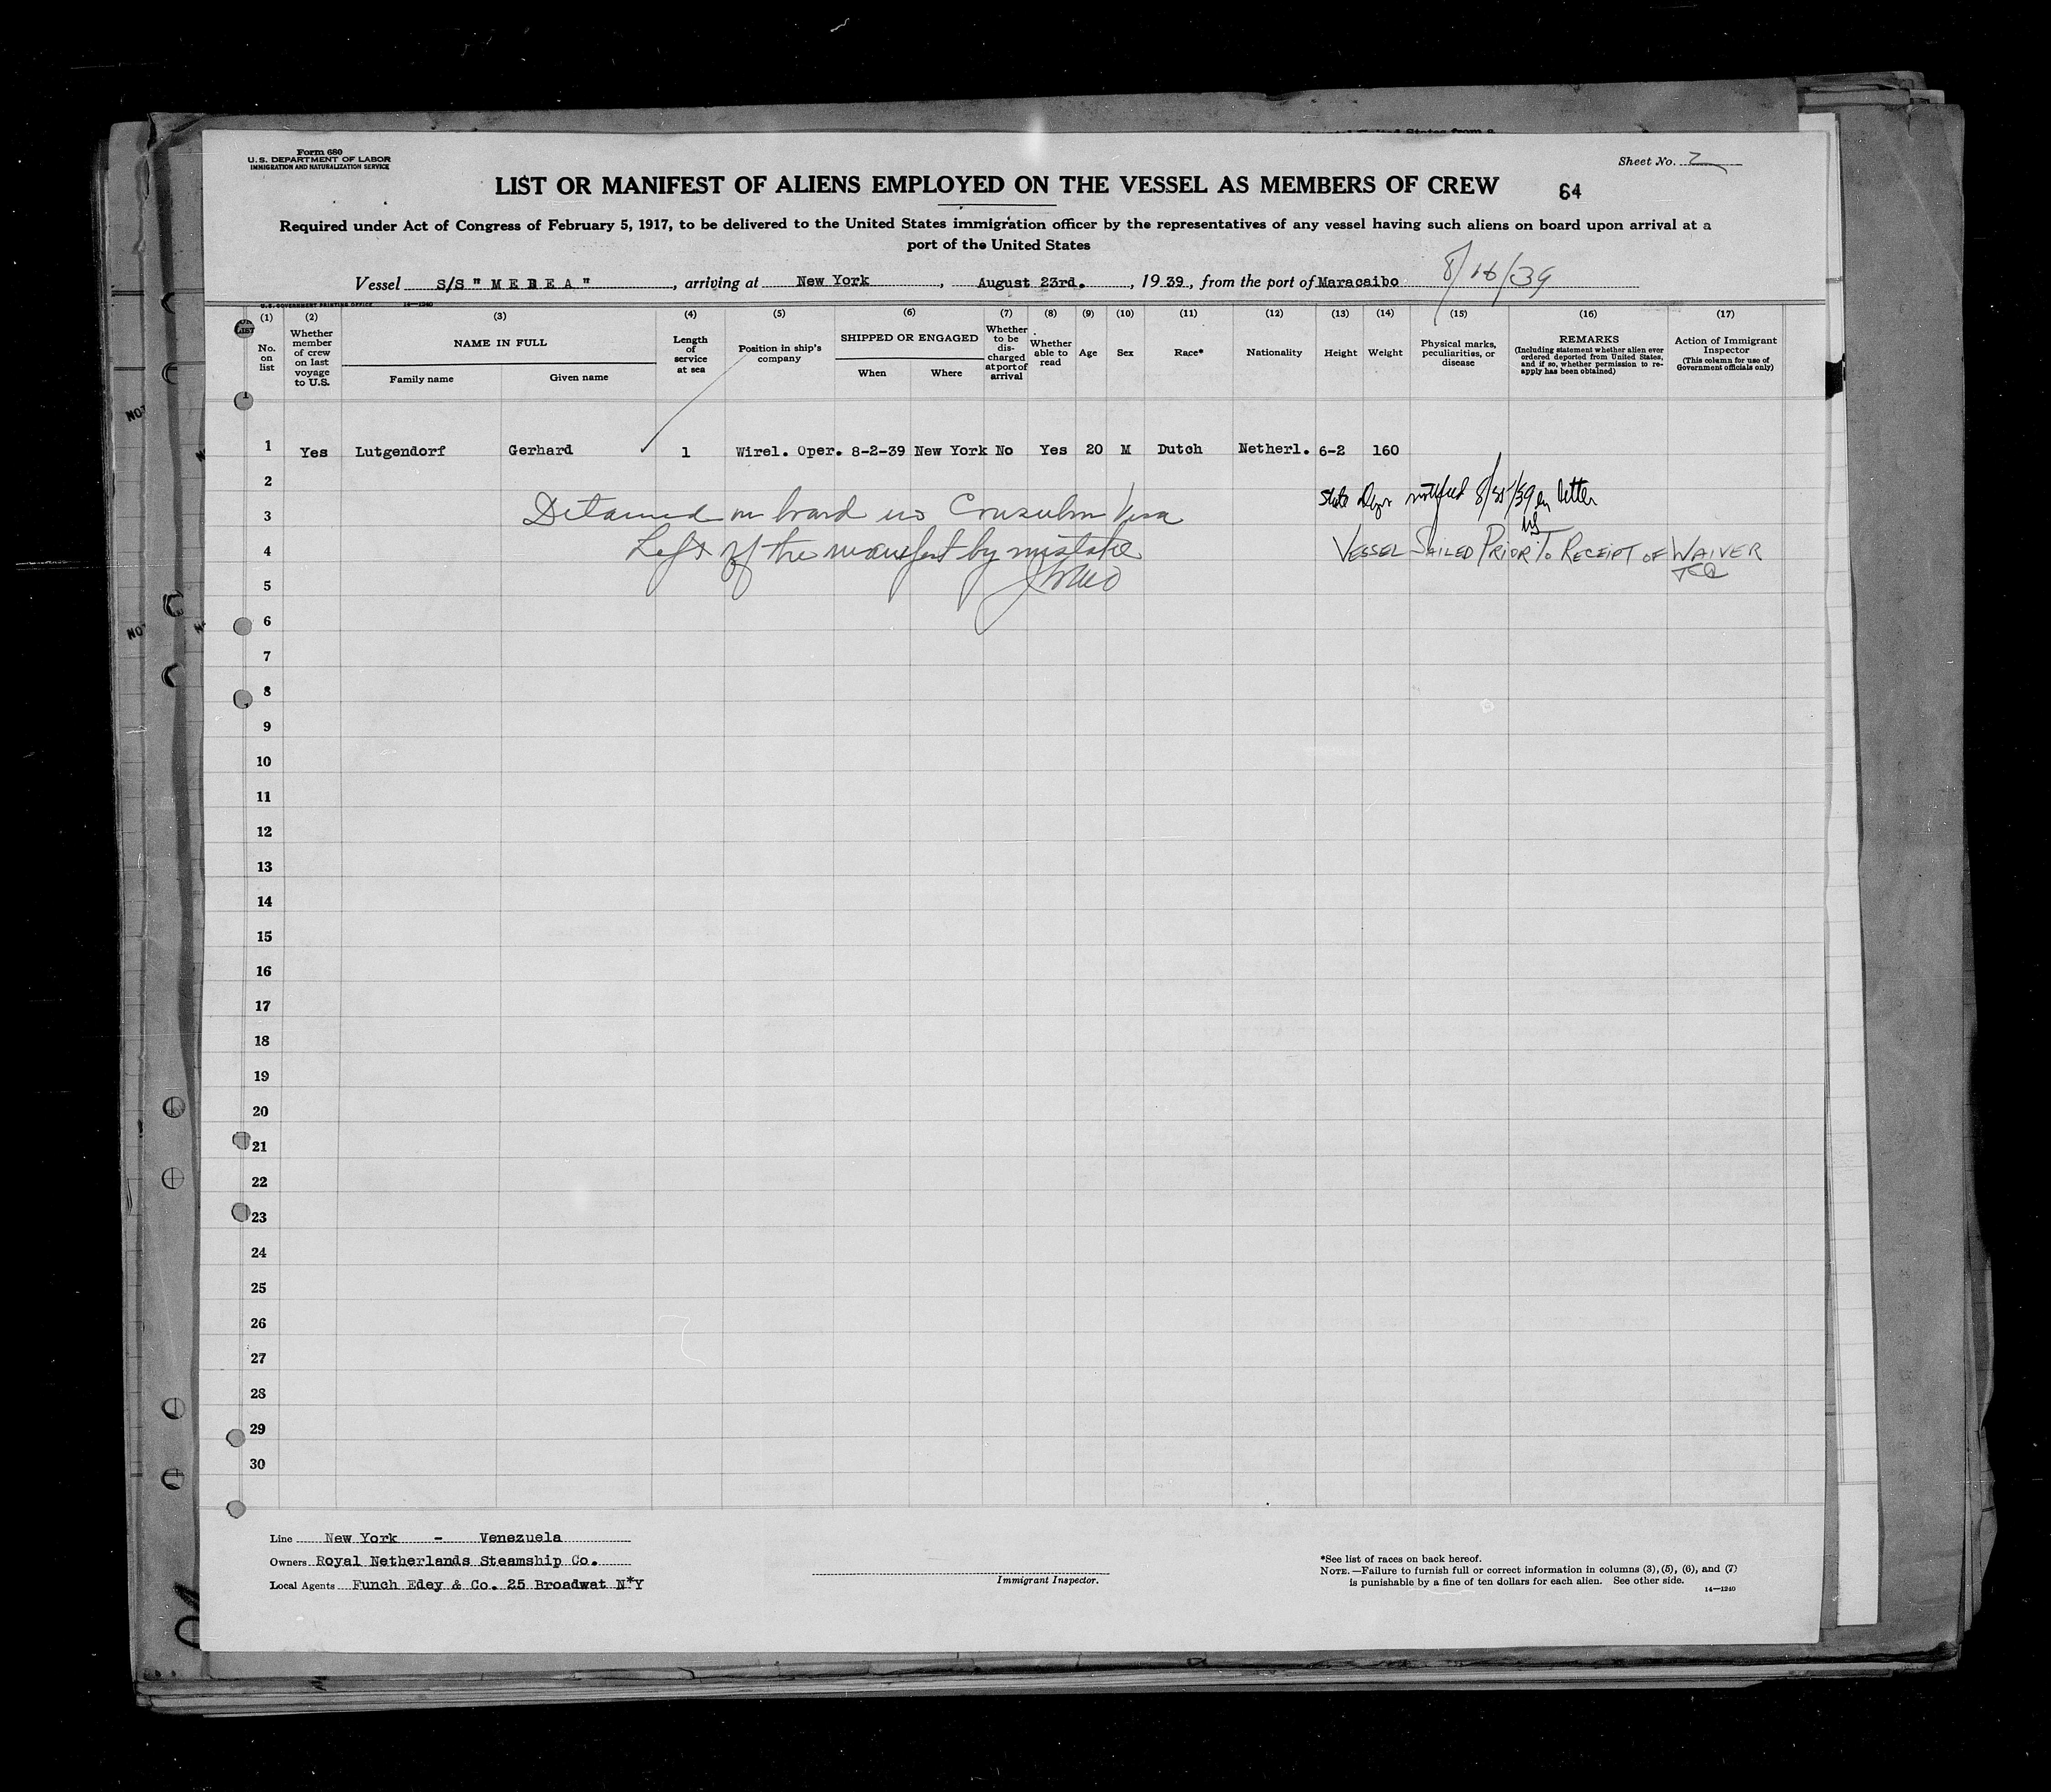 Form 680
U.S. DEPARTMENT OF LABOR
IMMIGRATION AND NATURALIZATION SERVICE
Sheet No. 2
LIST OR MANIFEST OF ALIENS EMPLOYED ON THE VESSEL AS MEMBERS OF CREW
64
Required under Act of Congress of February 5, 1917, to be delivered to the United States immigration officer by the representatives of any vessel having such aliens on board upon arrival at a
port of the United States
8/16/39
Vessel S/S "MEDEA", arriving at New York, August 23rd., 1939, from the port of Maracaibo
U.S. GOVERNMENT PRINTING OFFICE 14—1240
(1) (2) (3) (4) (5) (6) (7) (8) (9) (10) (11) (12) (13) (14) (15) (16) (17)
No. on list
Whether member of crew on last voyage to U.S.
NAME IN FULL
Family name Given name
Length of service at sea
Position in ship's company
SHIPPED OR ENGAGED
When Where
Whether to be discharged at port of arrival
Whether able to read
Age
Sex
Race*
Nationality
Height
Weight
Physical marks, peculiarities, or disease
REMARKS
(Including statement whether alien ever ordered deported from United States, and if so, whether permission to re-apply has been obtained)
Action of Immigrant Inspector
(This column for use of Government officials only)
1 Yes Lutgendorf Gerhard 1 Wirel. Oper. 8-2-39 New York No Yes 20 M Dutch Netherl. 6-2 160
2
State Dept notified 8/25/39 by letter
3 Detained on board no Consular Visa
4 Left of the manifest by mistake
VESSEL SAILED PRIOR TO RECEIPT OF WAIVER
5
6
7
8
9
10
11
12
13
14
15
16
17
18
19
20
21
22
23
24
25
26
27
28
29
30
Line New York - Venezuela
Owners Royal Netherlands Steamship Co.
Local Agents Funch Edey & Co. 25 Broadwat N*Y
Immigrant Inspector.
*See list of races on back hereof.
NOTE.—Failure to furnish full or correct information in columns (3), (5), (6), and (7)
is punishable by a fine of ten dollars for each alien. See other side.
14—1240